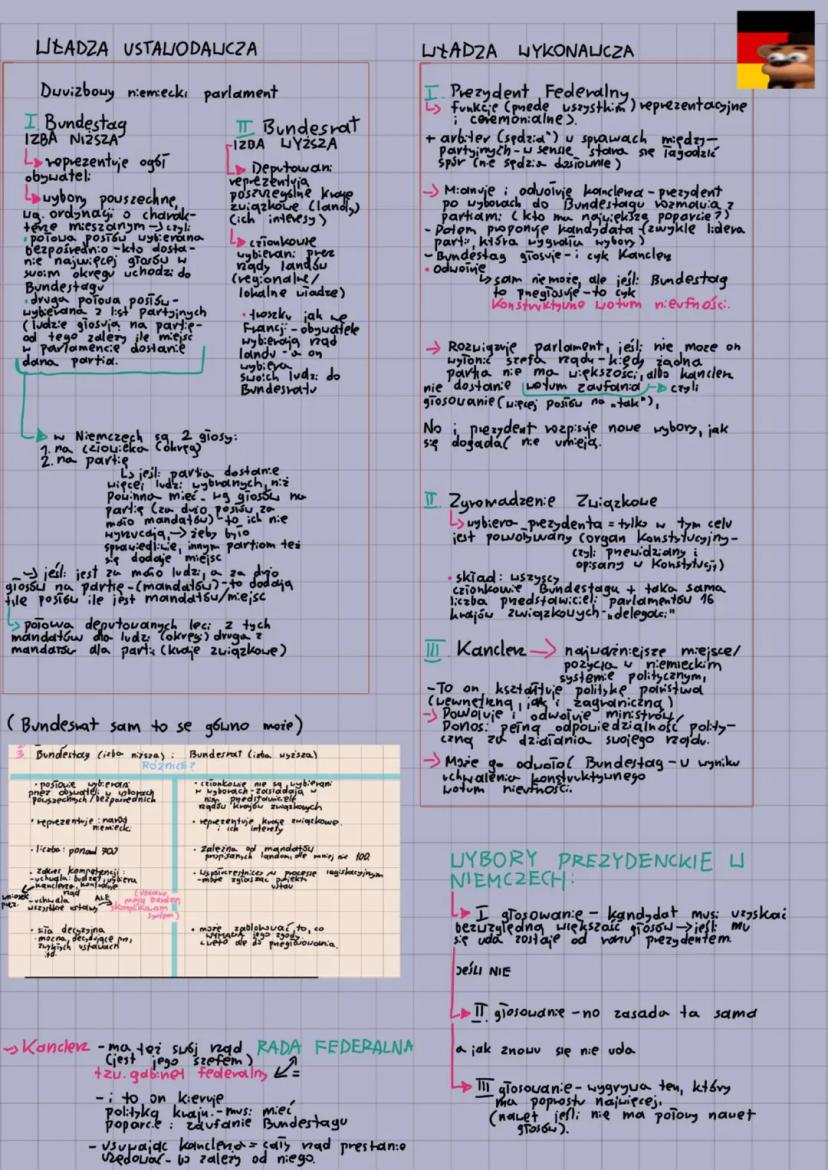 WŁADZA USTAWODAWCZA
Dwuizbowy niemiecki parlament
I Bundestag
IZBA NIŻSZA
reprezentuje ogół
obywateli
wybory powszechne,
wg. ordynacji o charak-
terze mieszanym → czyli:
· połowa posłów wybierana
bezpośrednio - kto dosta-
nie najwięcej głosów w
swoim okręgu wchodzi do
Bundestagu
· druga połowa posłów -
wybierana z list partyjnych
(ludzie głosują na partię -
od tego zależy ile miejsc
w parlamencie dostanie
dana partia.
II Bundesrat
IZBA WYŻSZA
Deputowani
reprezentują
poszczególne kraje
związkowe (landy)
(ich interesy)
członkowie
wybierani przez
rządy landów
(regionalne/
lokalne władze)
· troszku jak we
Francji - obywatele
wybierają rząd
landu - a on
wybiera
swoich ludzi do
Bundesratu
w Niemczech są 2 głosy:
1. na człowieka (okręg)
2. na partię
↳ jeśli partia dostanie
więcej ludzi wybranych, niż
powinna mieć - wg głosów na
partię (za dużo posłów za
mało mandatów) - to ich nie
wyrzucają, → żeby było
sprawiedliwie, innym partiom też
się dodaje miejsc
→ jeśli jest za mało ludzi, a za dużo
głosów na partię - (mandatów) - to dodają
tyle posłów ile jest mandatów/miejsc
↳ połowa deputowanych leci z tych
mandatów dla ludzi (okręgi) druga z
mandatów dla partii (kraje związkowe)
(Bundesrat sam to se gówno może)
3. Bundestag (izba niższa) i Bundesrat (izba wyższa)
RÓŻNICE?
· posłowie wybierani
przez obywateli w wyborach
powszechnych / bezpośrednich
· reprezentuje: naród
niemiecki
· liczba: ponad 700
· zakres kompetencji:
- uchwala budżet, wybiera
kanclerza, kontroluje
rząd
- uchwala ALE
wszystkie ustawy
(ustawy
mają bardzo
skomplikowany
system)
· siła decyzyjna
- mocna, decydująca przy
zwykłych ustawach
itd.
· członkowie nie są wybierani
w wyborach - zasiadają w
nim przedstawiciele
rządów krajów związkowych
· reprezentuje kraje związkowe
i ich interesy
· zależna od mandatów
przypisanych landom, ale mniej niż 100
· współuczestniczy w procesie legislacyjnym
- może zgłaszać projekty
ustaw
· może zablokować to, co
wymaga jego zgody,
a weto ale do przegłosowania.
→ Kanclerz - ma też swój rząd RADA FEDERALNA
(jest jego szefem)
tzw. gabinet federalny =
- i to on kieruje
polityką kraju - musi mieć
poparcie i zaufanie Bundestagu
- usuwając kanclerza = cały rząd przestanie
urzędować - bo zależy od niego.
WŁADZA WYKONAWCZA
I. Prezydent Federalny
↳ funkcje (przede wszystkim) reprezentacyjne
i ceremonialne).
+ arbiter (sędzia") w sprawach między-
partyjnych - w sensie stara się łagodzić
spór (nie sędzia dosłownie)
→ Mianuje i odwołuje kanclerza - prezydent
po wyborach do Bundestagu rozmawia z
partiami (kto ma największe poparcie?)
- Potem proponuje kandydata (zwykle lidera
partii, która wygrała wybory)
- Bundestag głosuje - i cyk Kanclerz
· odwołuje
↳ sam nie może, ale jeśli Bundestag
to przegłosuje - to cyk
Konstruktywne wotum nieufności.
→ Rozwiązuje parlament, jeśli nie może on
wyłonić szefa rządu - kiedy żadna
partia nie ma większości, albo kanclerz
nie dostanie wotum zaufania → czyli
głosowanie (więcej posłów na „tak"),
No i prezydent rozpisuje nowe wybory, jak
się dogadać nie umieją.
II Zgromadzenie Związkowe
↳ wybiera prezydenta = tylko w tym celu
jest powoływany (organ konstytucyjny -
czyli przewidziany i
opisany w Konstytucji)
· skład: wszyscy
członkowie Bundestagu + taka sama
liczba przedstawicieli parlamentów 16
krajów związkowych - „delegaci"
III Kanclerz → najważniejsze miejsce/
pozycja w niemieckim
systemie politycznym,
- To on kształtuje politykę państwa
(wewnętrzną, jak i zagraniczną)
→ Powołuje i odwołuje ministrów
Ponosi pełną odpowiedzialność polity-
czną za działania swojego rządu.
→ Może go odwołać Bundestag - w wyniku
uchwalenia konstruktywnego
wotum nieufności.
WYBORY PREZYDENCKIE W
NIEMCZECH:
I głosowanie - kandydat musi uzyskać
bezwzględną większość głosów → jeśli mu
się uda zostaje od razu prezydentem
JEŚLI NIE
II głosowanie - no zasada ta sama
a jak znowu się nie uda
III głosowanie - wygrywa ten, który
ma poprostu najwięcej.
(nawet jeśli nie ma połowy nawet
głosów).